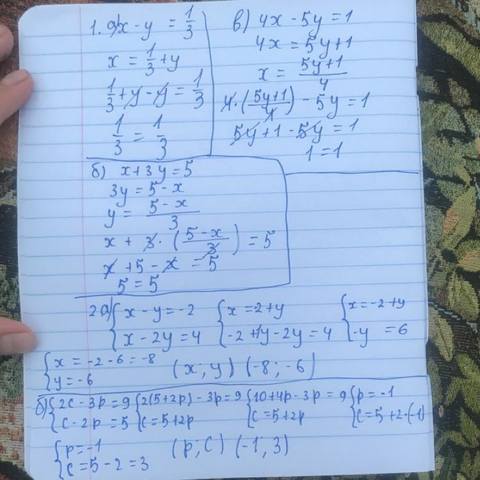 1. а) x - y = 1/3
x = 1/3 + y
1/3 + y - y = 1/3
1/3 = 1/3
в) 4x - 5y = 1
4x = 5y + 1
x = (5y+1)/4
4 · ((5y+1)/4) - 5y = 1
5y + 1 - 5y = 1
1 = 1
б) x + 3y = 5
3y = 5 - x
y = (5-x)/3
x + 3 · ((5-x)/3) = 5
x + 5 - x = 5
5 = 5
2 а) { x - y = -2 { x = 2 + y { x = -2 + y
{ x - 2y = 4 { -2 + y - 2y = 4 { -y = 6
{ x = -2 - 6 = -8
{ y = -6 (x; y) (-8; -6)
б) { 2c - 3p = 9 { 2(5+2p) - 3p = 9 { 10 + 4p - 3p = 9 { p = -1
{ c - 2p = 5 { c = 5 + 2p { c = 5 + 2p { c = 5 + 2 · (-1)
{ p = -1
{ c = 5 - 2 = 3 (p; c) (-1; 3)